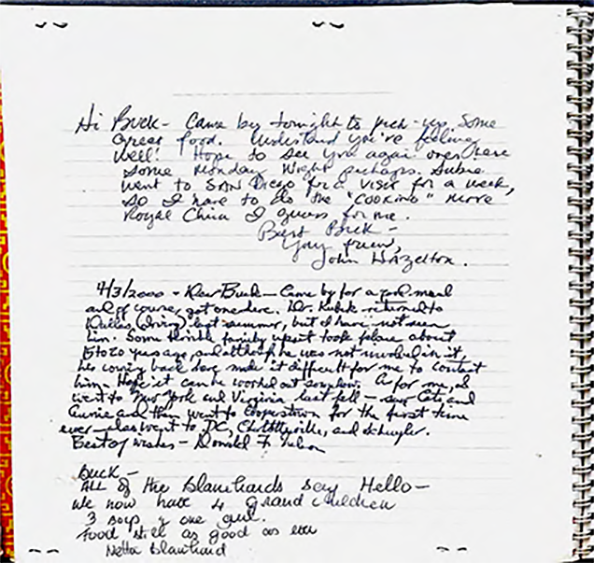 Hi Buck - Came by tonight to pick-up some
great food. Understand you're feeling
well! Hope to see you again over here
some Monday Night perhaps.
went to SAN Diego for a visit for a week,
so I have to do the "COOKING" more
Royal China I guess for me.
Best Buck -
Your friend,
John
4/3/2000 - Dear Buck - Came by for a good meal
and of course, got one here. Dr. Kubik returned to
Dallas last summer, but I have not seen
him. Some terrible family upset took place about
15 to 20 yrs ago, and although he was not involved in it,
his coming back here made it difficult for me to contact
him. Hope it can be worked out somehow. As for me, I
went to New York and Virginia last fall - saw and
and then went to Cooperstown for the first time
ever - also went to DC, Charlottesville, and Schuyler.
Best of wishes - Donald F.
BUCK -
ALL of the Blanchards say Hello -
We now have 4 grand children
3 boys & one girl.
Food still as good as ever
Netta Blanchard